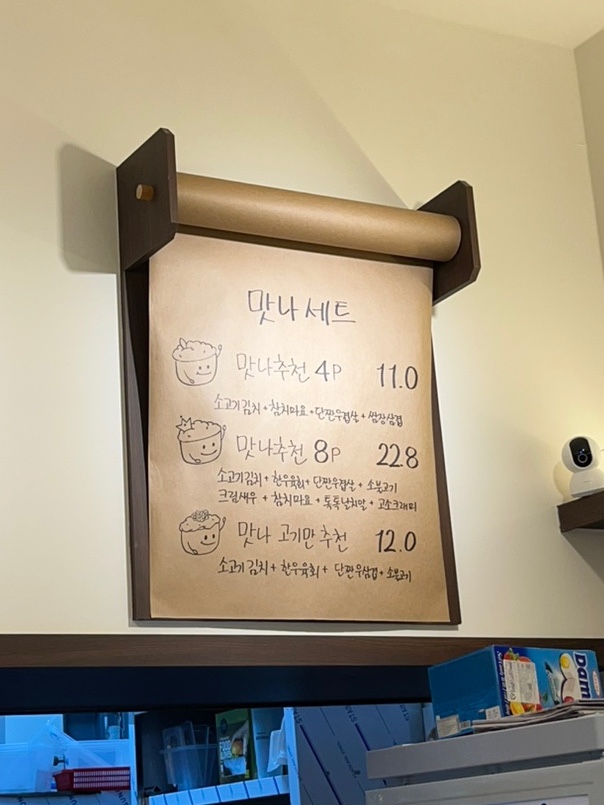 맛나 세트
맛나추천 4P 11.0
소고기김치 + 참치마요 + 단짠우겹살 + 쌈장삼겹
맛나추천 8P 22.8
소고기김치 + 한우육회 + 단짠우겹살 + 소불고기
크림새우 + 참치마요 + 톡톡날치알 + 고소크래미
맛나 고기만 추천 12.0
소고기김치 + 한우육회 + 단짠우삼겹 + 소불고기
Dam